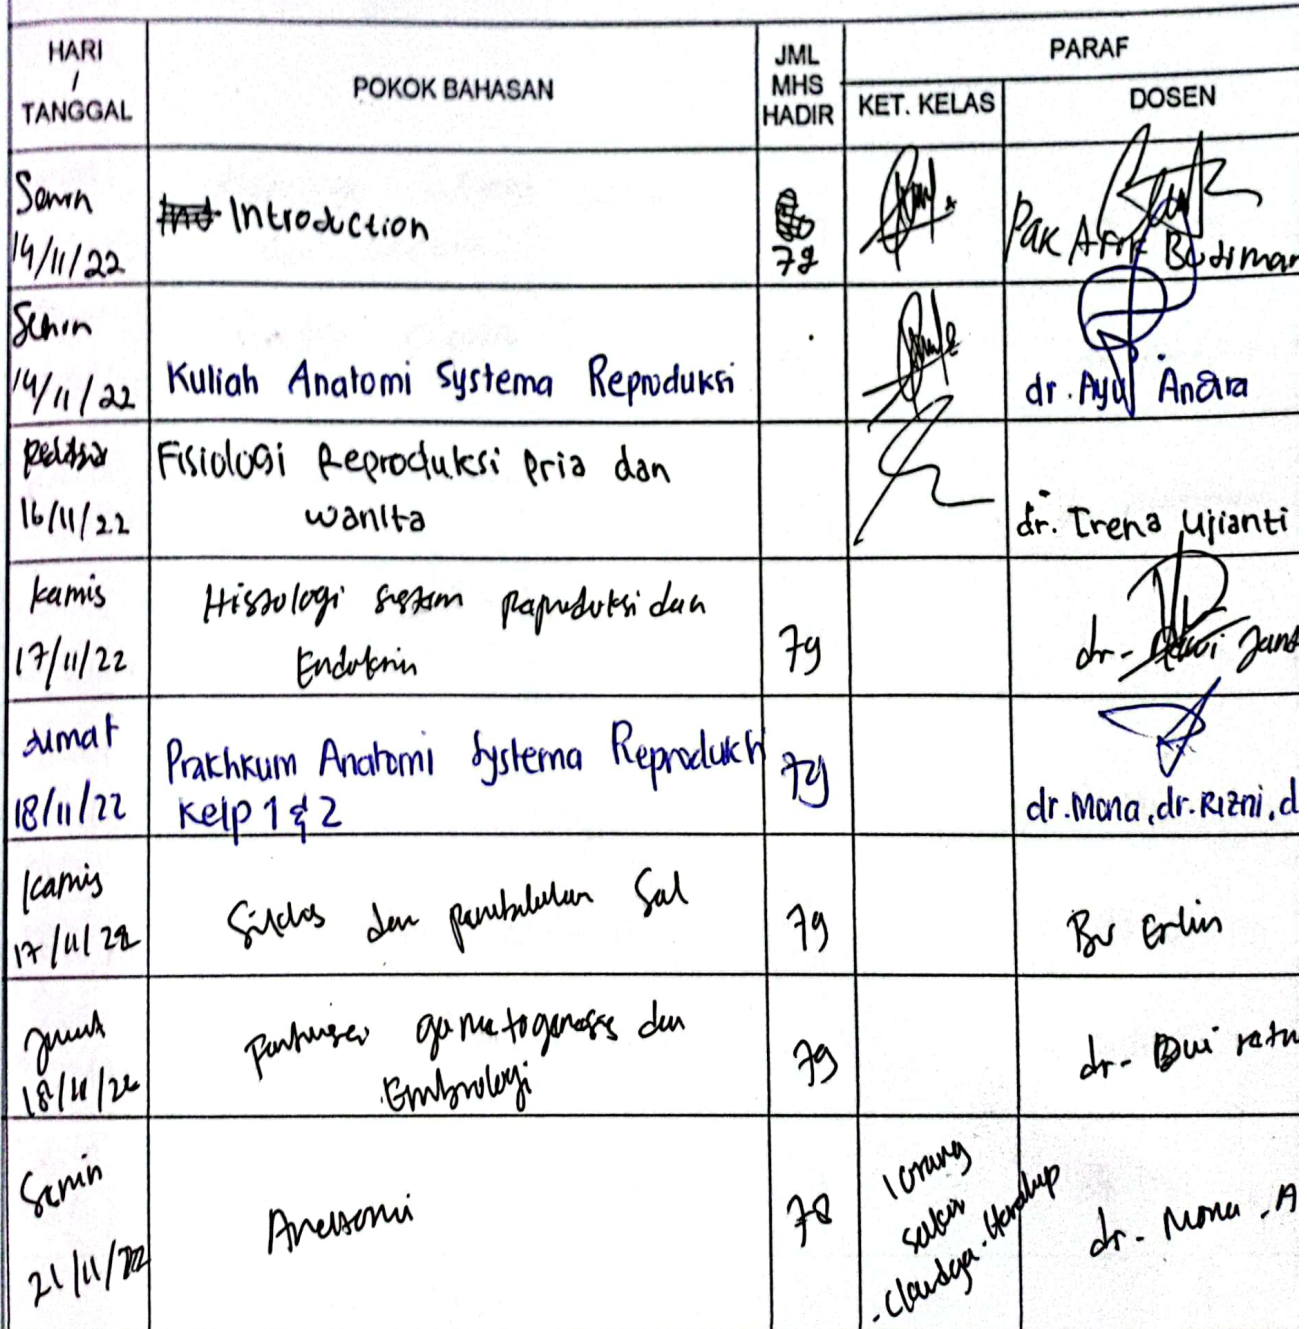 HARI / TANGGAL
POKOK BAHASAN
JML MHS HADIR
PARAF
KET. KELAS
DOSEN
Senin
14/11/22
Introduction
79
Pak Arif Budiman
Senin
14/11/22
Kuliah Anatomi Systema Reproduksi
dr. Ayu Andira
16/11/22
Fisiologi Reproduksi Pria dan
wanita
dr. Irena Ujianti
Kamis
17/11/22
Histologi sistem Reproduksi dan
Endokrin
79
dr. Dewi
Jumat
18/11/22
Prakhkum Anatomi Systema Reproduksi
Kelp 1 & 2
79
dr. Mona, dr. Rizni, d
Kamis
17/11/22
Siklus dan pembelahan Sel
79
Bu Erlin
Jumat
18/11/22
gametogenesis dan
Embriologi
79
dr. Dwi ratn
Senin
21/11/22
Anatomi
78
1 orang
sakit
. Claudya . Harahap
dr. Mona . A